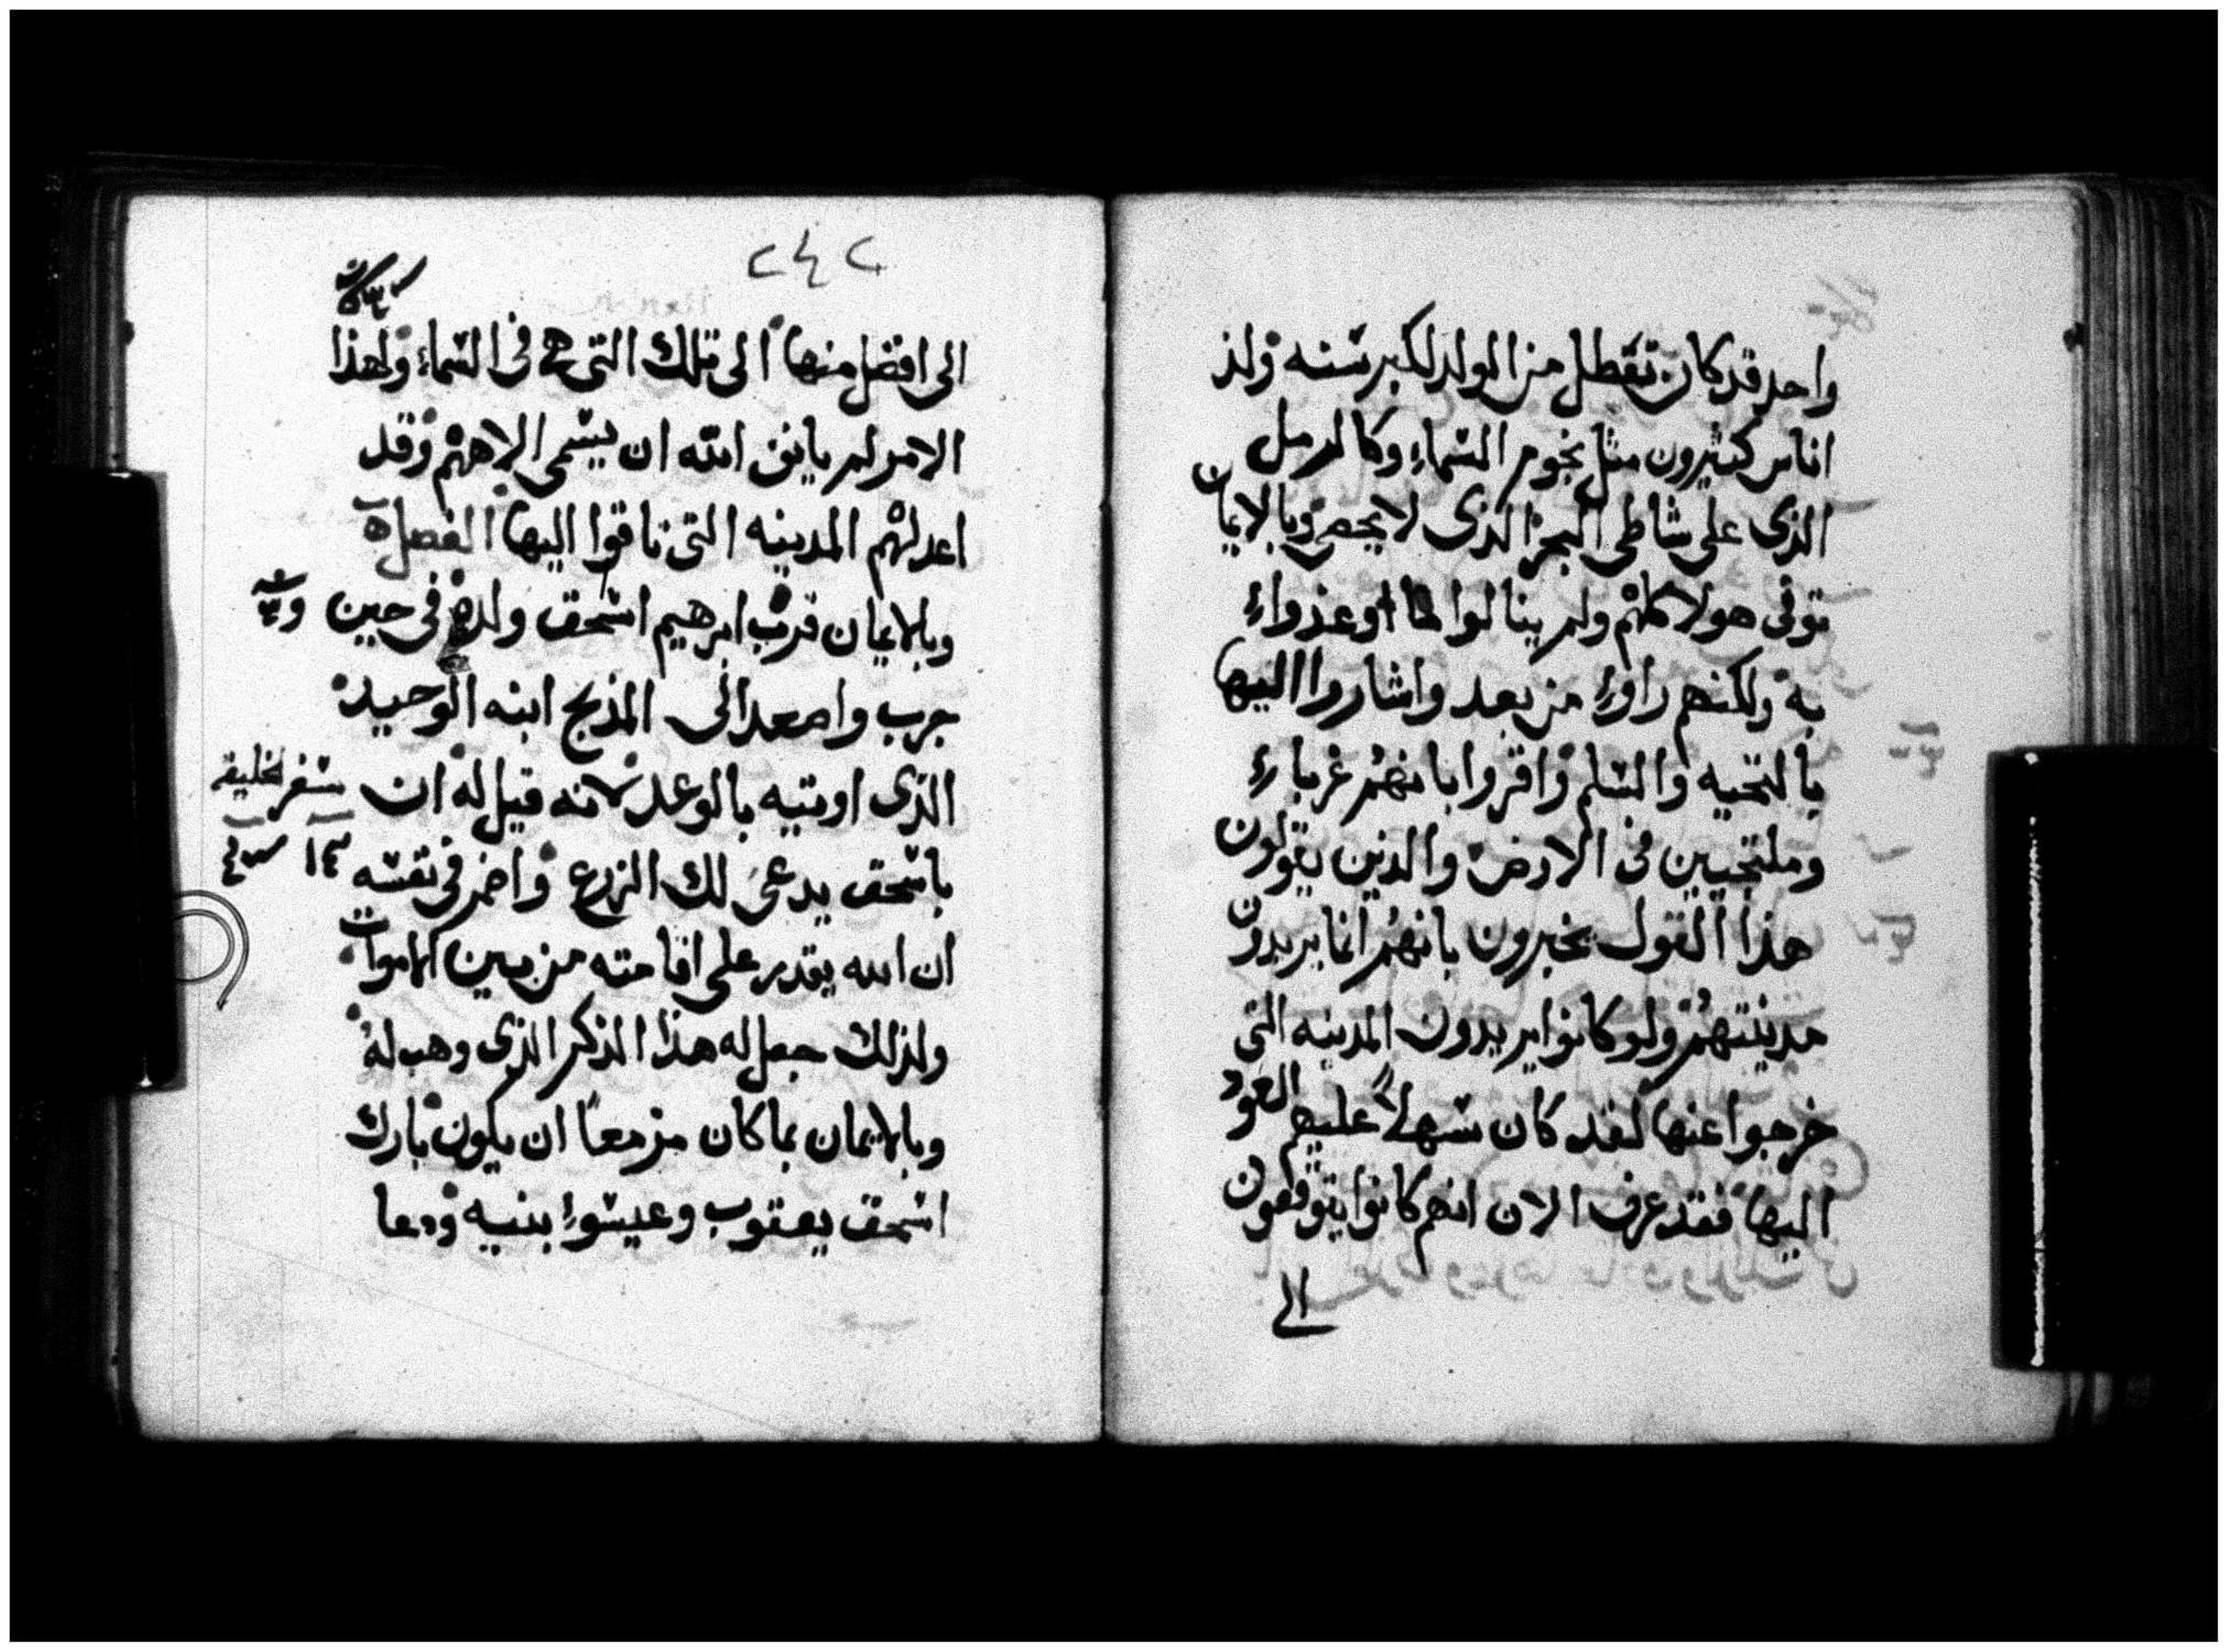 واحد قد كان تقطل من الولد لكبر سنه ولد
اناس كثيرون مثل نجوم السماء وكالرمل
الذى على شاطى البحر الذى لا يحصى وبالايمان
توفى هولا كلهم ولم ينالوا ما اوعدواء
به ولكنهم راوء من بعد واشاروا اليها
بالتحيه والسلم واقروا بانهم غرباء
وملتجيين فى الارض والذين يقولون
هذا القول يخبرون بانهم انما يريدون
مدينتهم ولو كانوا يريدون المدينه التى
خرجوا عنها لقد كان سهلاً عليهم العود
اليها فقد عرف الان انهم كانوا يتوقعون
الى
٢٤٢
الى افضل منها الى تلك التى هى فى السماء ولهذا
الامر لم يانف الله ان يسمى الاههم وقد
اعد لهم المدينه التى تاقوا اليها الفصل
وبالايمان قرب ابرهيم اسحق ولده فى حين
جرب واصعد الى المذبح ابنه الوحيد
الذى اوتيه بالوعد لانه قيل له ان سفر الخليقه
باسحق يدعى لك الزرع واضمر فى نفسه
ان الله يقدر على اقامته من بين الاموات
ولذلك جعل له هذا الذكر الذى وهب له
وبالايمان بما كان مزمعاً ان يكون بارك
اسحق يعقوب وعيسوا بنيه ودعا